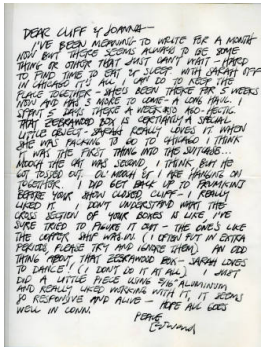 DEAR CLIFF & JOANNA—
I'VE BEEN MEANING TO WRITE FOR A MONTH
NOW BUT THERE SEEMS ALWAYS TO BE SOME
THING OR OTHER THAT JUST CAN'T WAIT - HARD
TO FIND TIME TO EAT & SLEEP. WITH SARAH OFF
IN CHICAGO IT'S ALL I CAN DO TO KEEP THE
PLACE TOGETHER - SHE'S BEEN THERE FOR 5 WEEKS
NOW AND HAS 3 MORE TO COME - A LONG HAUL. I
SPENT 5 DAYS THERE A WEEK AGO - HECTIC.
THAT ZEBRAWOOD BOX IS CERTAINLY A SPECIAL
LITTLE OBJECT - SARAH REALLY LOVES IT. WHEN
SHE WAS PACKING TO GO TO CHICAGO I THINK
IT WAS THE FIRST THING INTO THE SUITCASE.
MOOCH THE CAT WAS SECOND, I THINK BUT HE
GOT TOSSED OUT. OL' MOOCH & I ARE HANGING ON
TOGETHER. I DID GET BACK UP TO FRUMKINS
BEFORE YOUR SHOW CLOSED CLIFF - I REALLY
LIKED IT. DON'T UNDERSTAND WHAT THE
CROSS SECTION OF YOUR BOXES IS LIKE, I'VE
SURE TRIED TO FIGURE IT OUT - THE ONE'S LIKE
THE COPPER SHE WAS IN. (I OFTEN PUT IN EXTRA
PERIODS, PLEASE TRY AND IGNORE THEM.) AN ODD
THING ABOUT THAT ZEBRAWOOD BOX - SARAH LOVES
TO DANCE! (I DON'T DO IT AT ALL) I JUST
DID A LITTLE PIECE USING 5/16" ALUMINUM
AND REALLY LIKED WORKING WITH IT, IT SEEMS
SO RESPONSIVE AND ALIVE - HOPE ALL GOES
WELL IN CONN.
PEACE